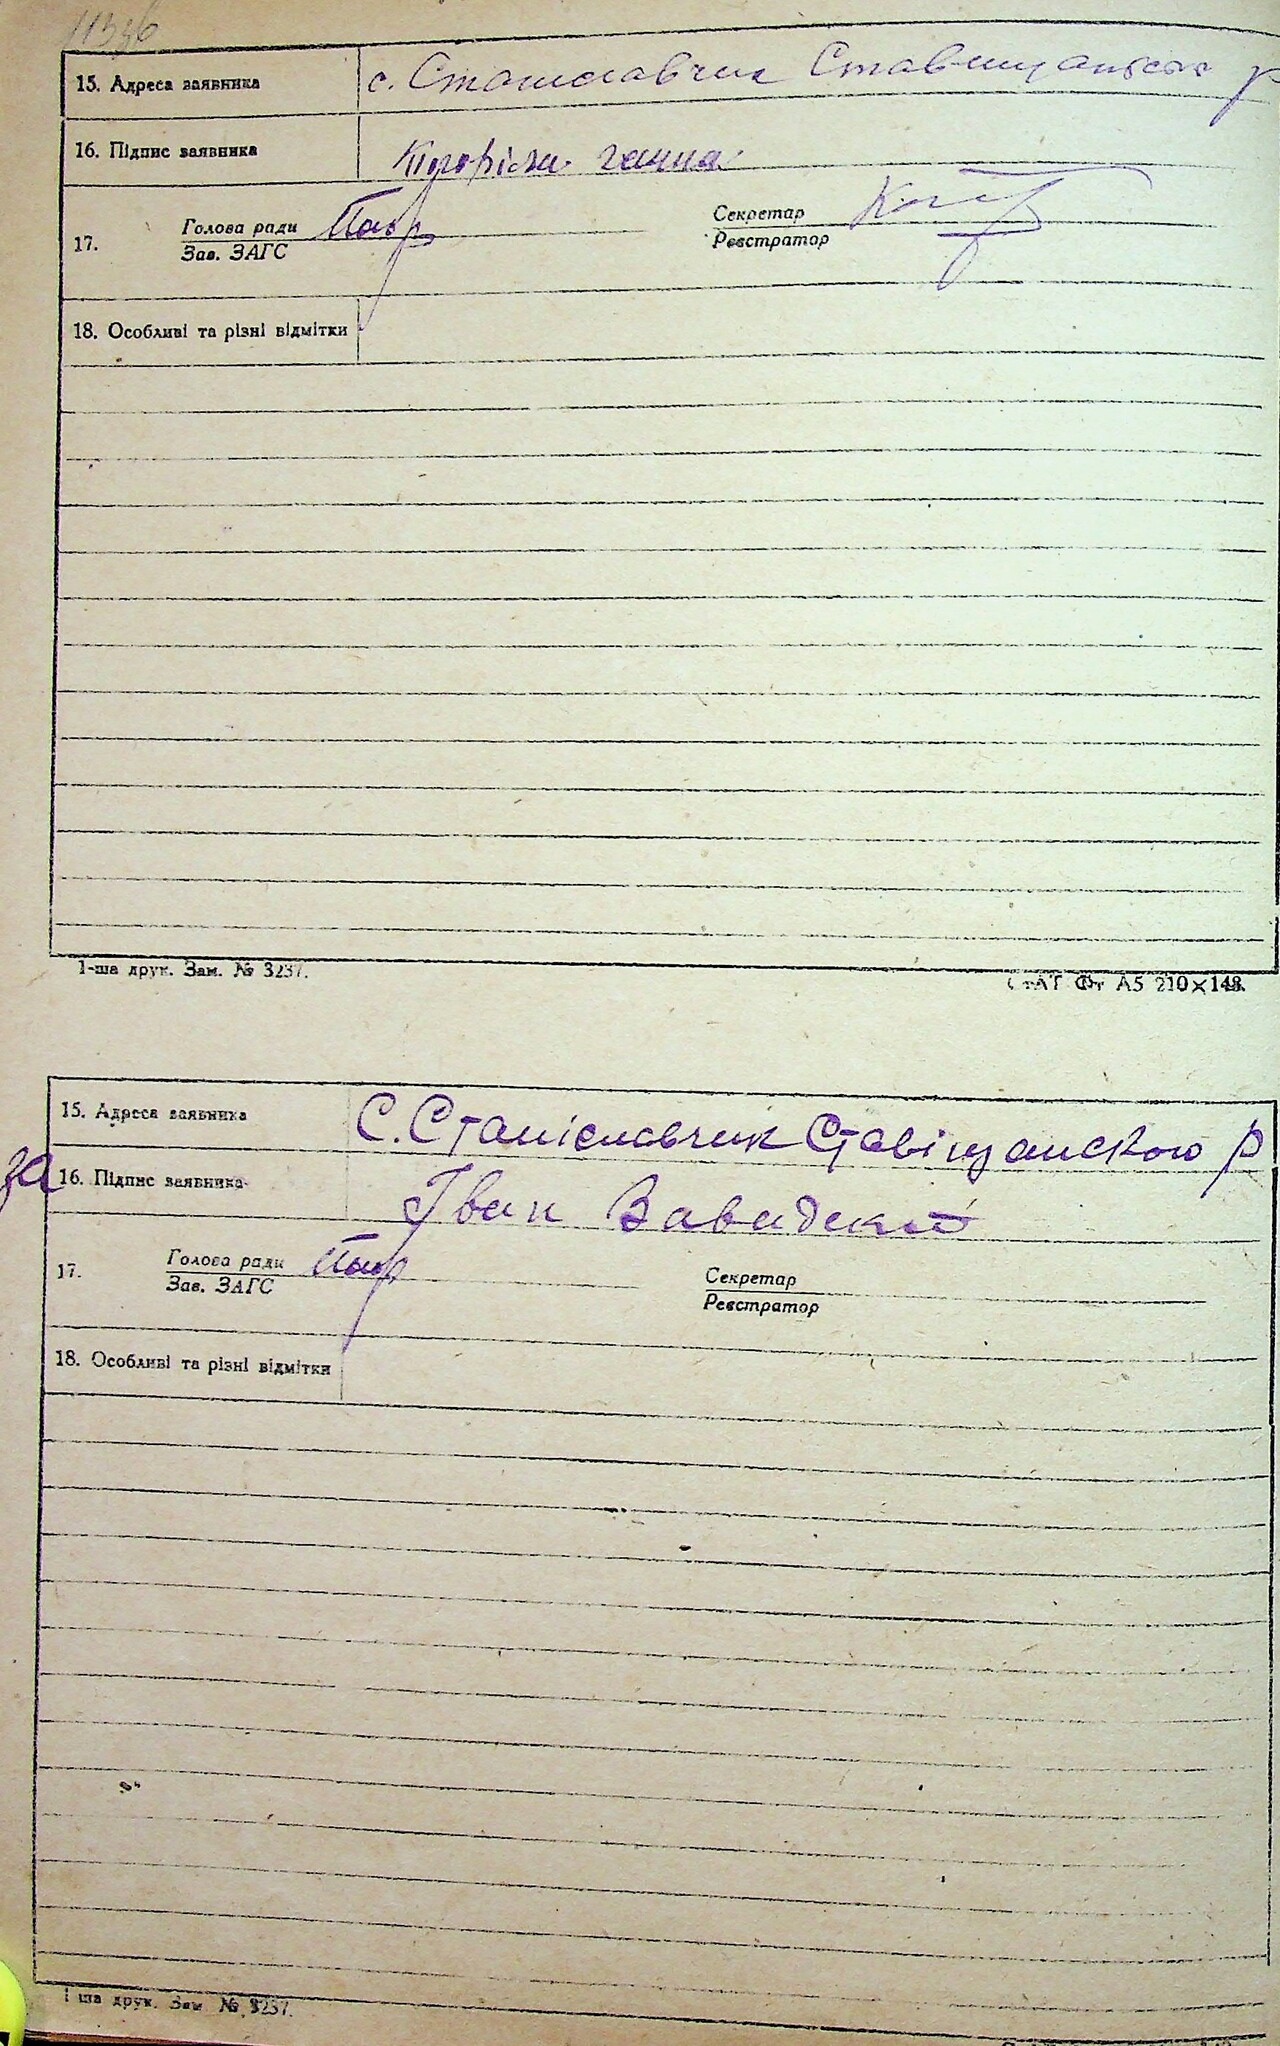 113зв
15. Адреса заявника с. Станиславчик Ставищанского р
16. Підпис заявника Погоріла ганна
17. Голова ради Секретар
Зав. ЗАГС Реєстратор
18. Особливі та різні відмітки
1-ша друк. Зам. № 3237. СтАТ Фт А5 210×148.
15. Адреса заявника С. Станіславчик Ставіщанскою р
за 16. Підпис заявника Іван Завадский
17. Голова ради Секретар
Зав. ЗАГС Реєстратор
18. Особливі та різні відмітки
1-ша друк. Зам. № 3237.